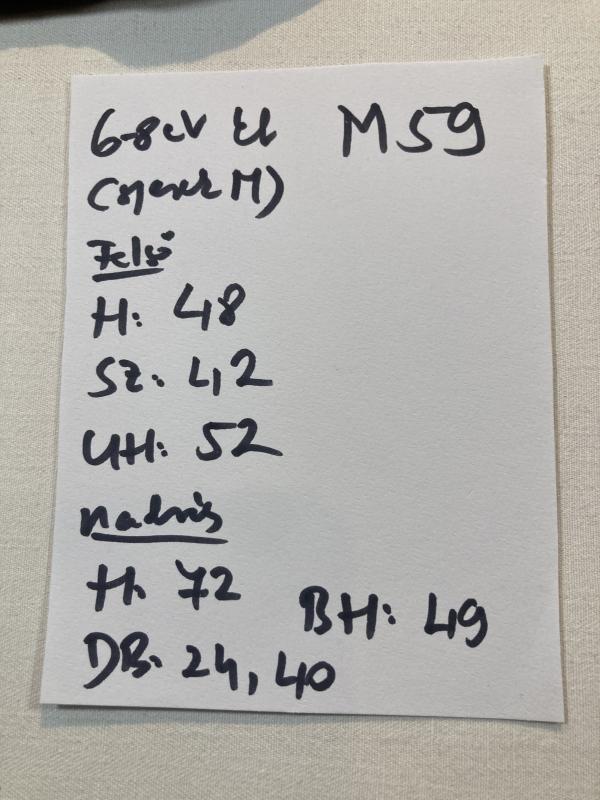 6-8 év
M59
(gyerek M)
Felső
H: 48
SZ: 42
UH: 52
Nadrág
H: 72
BH: 49
DB: 24, 40